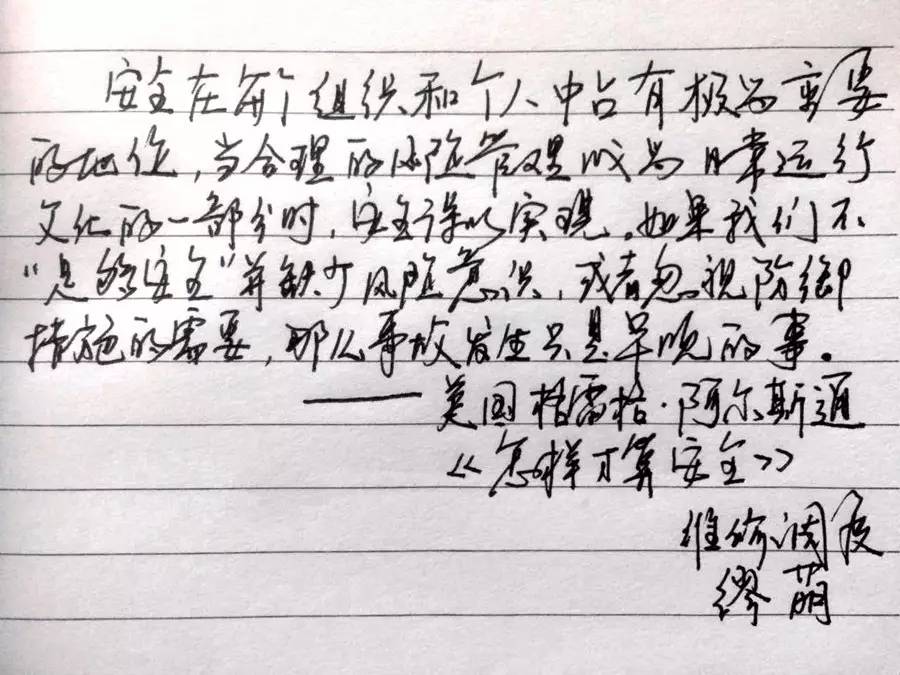 安全在每个组织和个人中占有极为重要
的地位，当合理的风险管理成为日常运行
文化的一部分时，安全得以实现。如果我们不
“足够安全”并缺少风险意识，或者忽视防御
措施的需要，那么事故发生只是早晚的事。
——美国格雷格·阿尔斯通
《怎样才算安全》
维修调度
缪萌